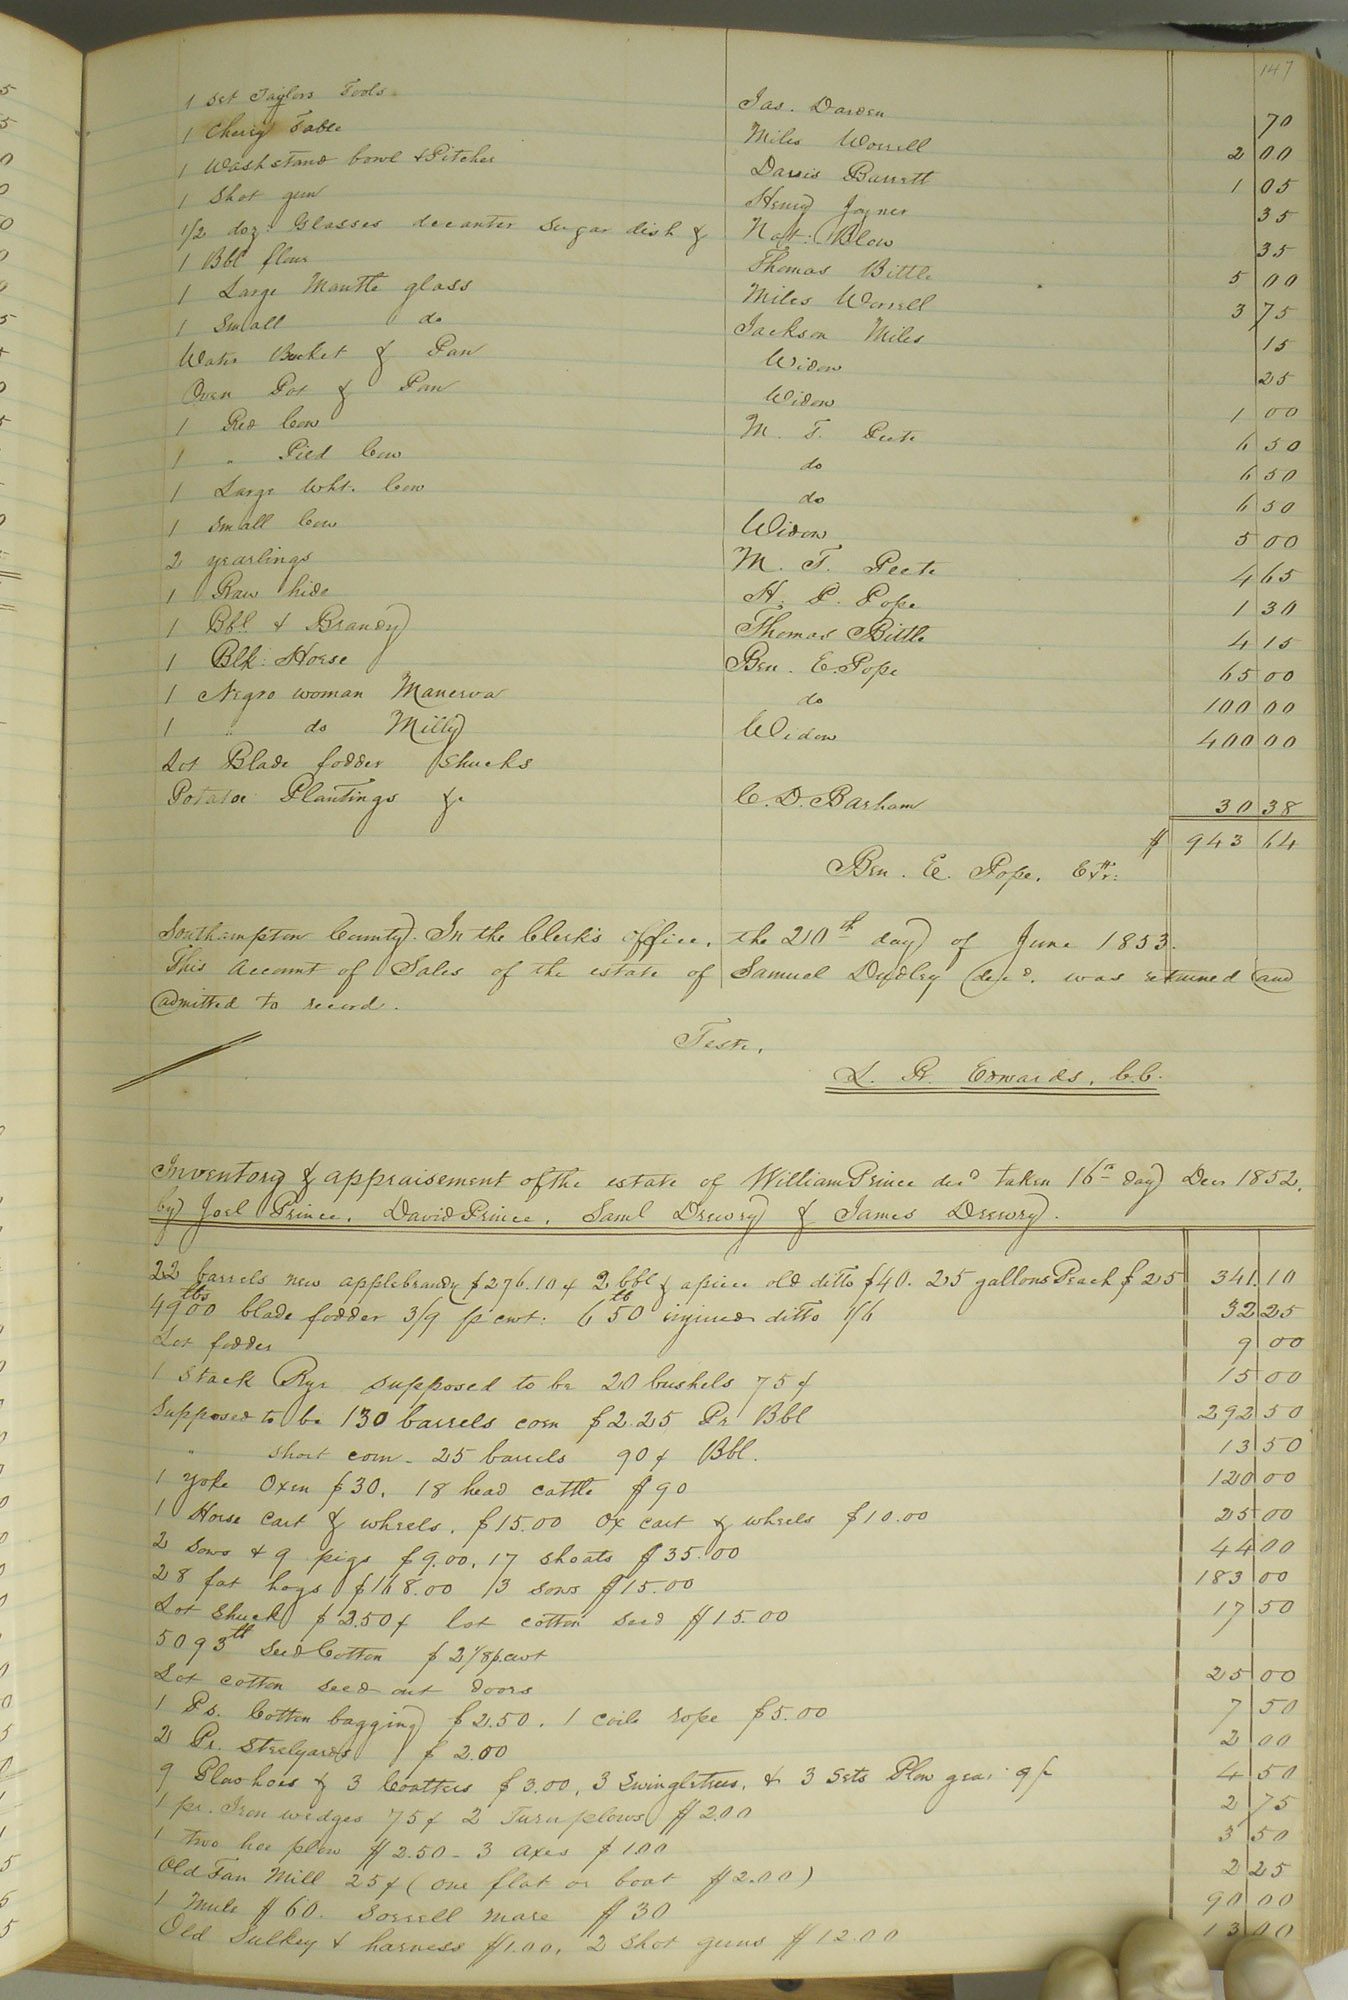 147
1 Set Taylors Tools Jas. Darden 70
1 Cherry Table Miles Worrell 2 00
1 Washstand bowl & Pitcher Davis Barrett 1 05
1 Shot gun Henry Joyner 35
1/2 doz: Glasses decanter Sugar dish & Nat: Blow 35
1 Bbl flour Thomas Bittle 5 00
1 Large Mantle glass Miles Worrell 3 75
1 Small do Jackson Miles 15
Water Bucket & Pan Widow 25
Oven Pot & Pan Widow 1 00
1 Red Cow M. T. Peete 6 50
1 " Pied Cow do 6 50
1 Large Wht. Cow do 6 50
1 Small Cow Widow 5 00
2 yearlings M. T. Peete 4 65
1 Raw hide H. P. Pope 1 30
1 Bbl. & Brandy Thomas Bittle 4 15
1 Blk: Horse Ben. E. Pope 65 00
1 Negro woman Manerva do 100 00
1 " do Milly Widow 400 00
Lot Blade fodder Shucks
Potatoe Plantings &c C. D. Barham 30 38
$ 943 64
Ben. E. Pope. Exr:
Southampton County. In the Clerk's office, the 20th day of June 1853.
This Account of Sales of the estate of Samuel Dudley decd. was returned and
admitted to record.
Teste,
L. R. Edwards, C.C.
Inventory & appraisement of the estate of William Prince decd taken 16th day Decr 1852,
by Joel Prince, David Prince, Saml Drewry & James Drewry.
22 barrels new applebrandy $276.10 & 2 bbl & a piece old ditto $40. 25 gallons Peach $25 341.10
4900 lbs blade fodder 3/9 pr cwt: 650 lb injured ditto 1/6 32 25
Lot fodder 9 00
1 Stack Rye supposed to be 20 bushels 75¢ 15 00
Supposed to be 130 barrels corn $2.25 Pr Bbl 292 50
" short corn - 25 barrels 90¢ Bbl. 13 50
1 yoke Oxen $30. 18 head cattle $90 120 00
1 Horse cart & wheels, $15.00 Ox cart & wheels $10.00 25 00
2 Sows & 9 pigs $9.00, 17 shoats $35.00 44 00
28 fat hogs $168.00 3 sows $15.00 183 00
Lot Shuck $2.50¢ lot cotton seed $15.00 17 50
5093 lb Seed Cotton $2 1/8 p. cwt
Lot cotton seed out doors 25 00
1 Ps. Cotton bagging $2.50, 1 coile rope $5.00 7 50
2 Pr. Steelyards $2.00 2 00
9 Plow hoes & 3 Coatters $3.00, 3 Swingletrees, & 3 Sets Plow gear 9/- 4 50
1 pr. Iron wedges 75¢ 2 Turn plows $2.00 2 75
1 two hoe plow $2.50 - 3 axes $1.00 3 50
Old Fan Mill 25¢ (one flat or boat $2.00) 2 25
1 Mule $60. Sorrell mare $30 90 00
Old Sulkey & harness $1.00, 2 shot guns $12.00 13 00